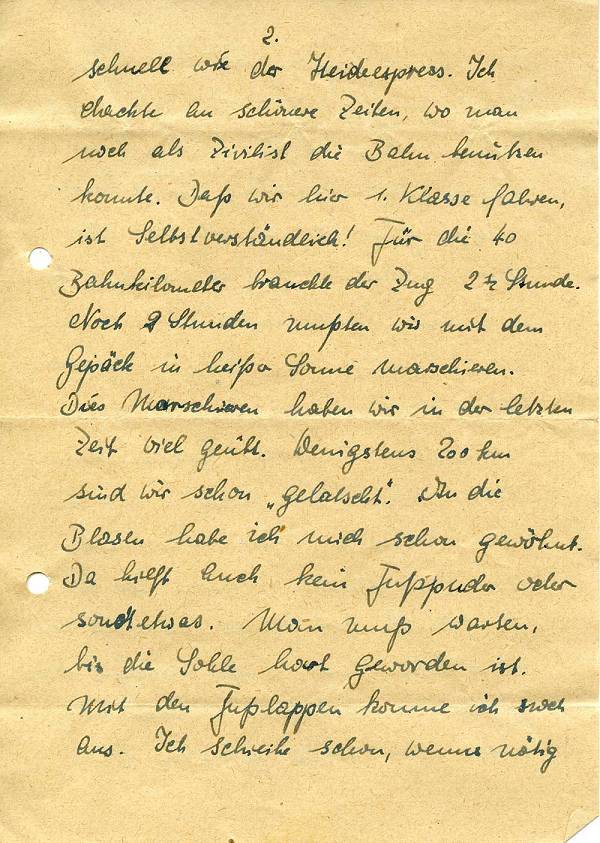 2.
schnell wie der Heideexpress. Ich
dachte an schönere Zeiten, wo man
noch als Zivilist die Bahn benützen
konnte. Daß wir hier 1. Klasse fahren,
ist Selbstverständlich! Für die 40
Bahnkilometer brauchte der Zug 2 ½ Stunde.
Noch 2 Stunden mußten wir mit dem
Gepäck in heißer Sonne marschieren.
Dies Marschieren haben wir in der letzten
Zeit viel geübt. Wenigstens 200 km
sind wir schon „gelatscht“. An die
Blasen habe ich mich schon gewöhnt.
Da hilft auch kein Fußpuder oder
sonst etwas. Man muß warten,
bis die Sohle hart geworden ist.
Mit den Fußlappen komme ich noch
aus. Ich schreibe schon, wenns nötig